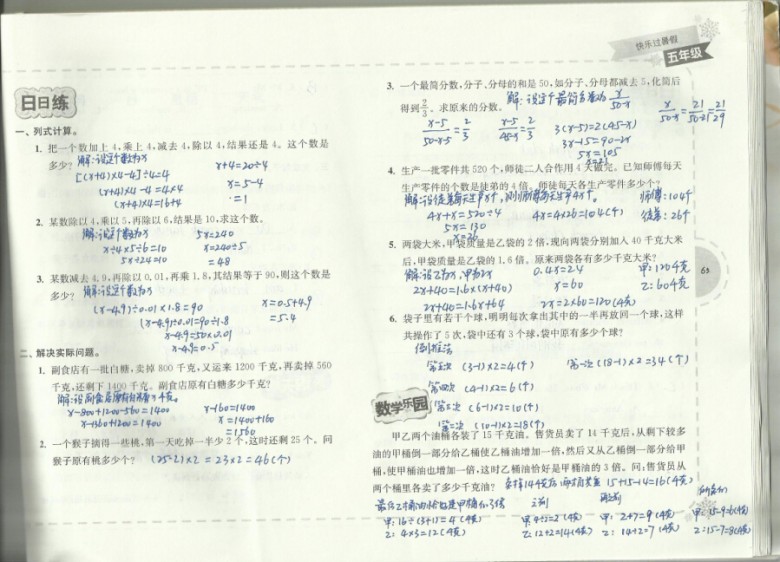 日日练
一、列式计算。
1. 把一个数加上 4,乘上 4,减去 4,除以 4,结果还是 4。这个数是
多少? 解:设这个数为x
[(x+4)×4-4]÷4=4
(x+4)×4-4=4×4
(x+4)×4=16+4
x+4=20÷4
x=5-4
=1
2. 某数除以 4,乘以 5,再除以 6,结果是 10,求这个数。
解:设这个数为x
x÷4×5÷6=10
5x÷24=10
5x=240
x=240÷5
=48
3. 某数减去 4.9,再除以 0.01,再乘 1.8,其结果等于 90,则这个数是
多少? 解:设这个数为x
(x-4.9)÷0.01×1.8=90
(x-4.9)÷0.01=90÷1.8
x-4.9=50×0.01
x-4.9=0.5
x=0.5+4.9
=5.4
二、解决实际问题。
1. 副食店有一批白糖,卖掉 800 千克,又运来 1200 千克,再卖掉 560
千克,还剩下 1400 千克。副食店原有白糖多少千克?
x-800+1200-560=1400
x-1360+1200=1400
x-160=1400
x=1400+160
=1560
2. 一个猴子摘得一些桃,第一天吃掉一半少 2 个,这时还剩 25 个。问
猴子原有桃多少个? (25-2)×2=23×2=46(个)
快乐过暑假
五年级
3. 一个最简分数,分子、分母的和是 50,如分子、分母都减去 5,化简后
得到2/3。求原来的分数。 解:设这个最简分数为x/50-x
x-5/50-x-5=2/3
x-5/45-x=2/3
3(x-5)=2(45-x)
3x-15=90-2x
5x=105
x=21
x/50-x=21/50-21=21/29
4. 生产一批零件共 520 个,师徒二人合作用 4 天做完。已知师傅每天
生产零件的个数是徒弟的 4 倍。师徒每天各生产零件多少个?
解:设徒弟每天生产x个,则师傅每天生产4x个。
4x+x=520÷4
5x=130
x=26
4x=4×26=104(个)
师傅:104个
徒弟:26个
5. 两袋大米,甲袋质量是乙袋的 2 倍,现向两袋分别加入 40 千克大米
后,甲袋质量是乙袋的 1.6 倍。原来两袋各有多少千克大米?
解:设乙为x,甲为2x
2x+40=1.6×(x+40)
2x+40=1.6x+64
0.4x=24
x=60
2x=2×60=120(千克)
甲:120千克
乙:60千克
6. 袋子里有若干个球,明明每次拿出其中的一半再放回一个球,这样
共操作了 5 次,袋中还有 3 个球,袋中原有多少个球?
倒推法
第五次 (3-1)×2=4(个)
第四次 (4-1)×2=6(个)
第三次 (6-1)×2=10(个)
第二次 (10-1)×2=18(个)
第一次 (18-1)×2=34(个)
数学乐园
甲乙两个油桶各装了 15 千克油。售货员卖了 14 千克后,从剩下较多
油的甲桶倒一部分给乙桶使乙桶油增加一倍,然后又从乙桶倒一部分给甲
桶,使甲桶油也增加一倍,这时乙桶油恰好是甲桶油的 3 倍。问:售货员从
两个桶里各卖了多少千克油? 15+15-14=16(千克)
甲:16÷(3+1)=4(千克)
乙:4×3=12(千克)
甲:4÷2=2(千克)
乙:12+2=14(千克)
甲:2+7=9(千克)
乙:14÷2=7(千克)
甲:15-9=6(千克)
乙:15-7=8(千克)
63